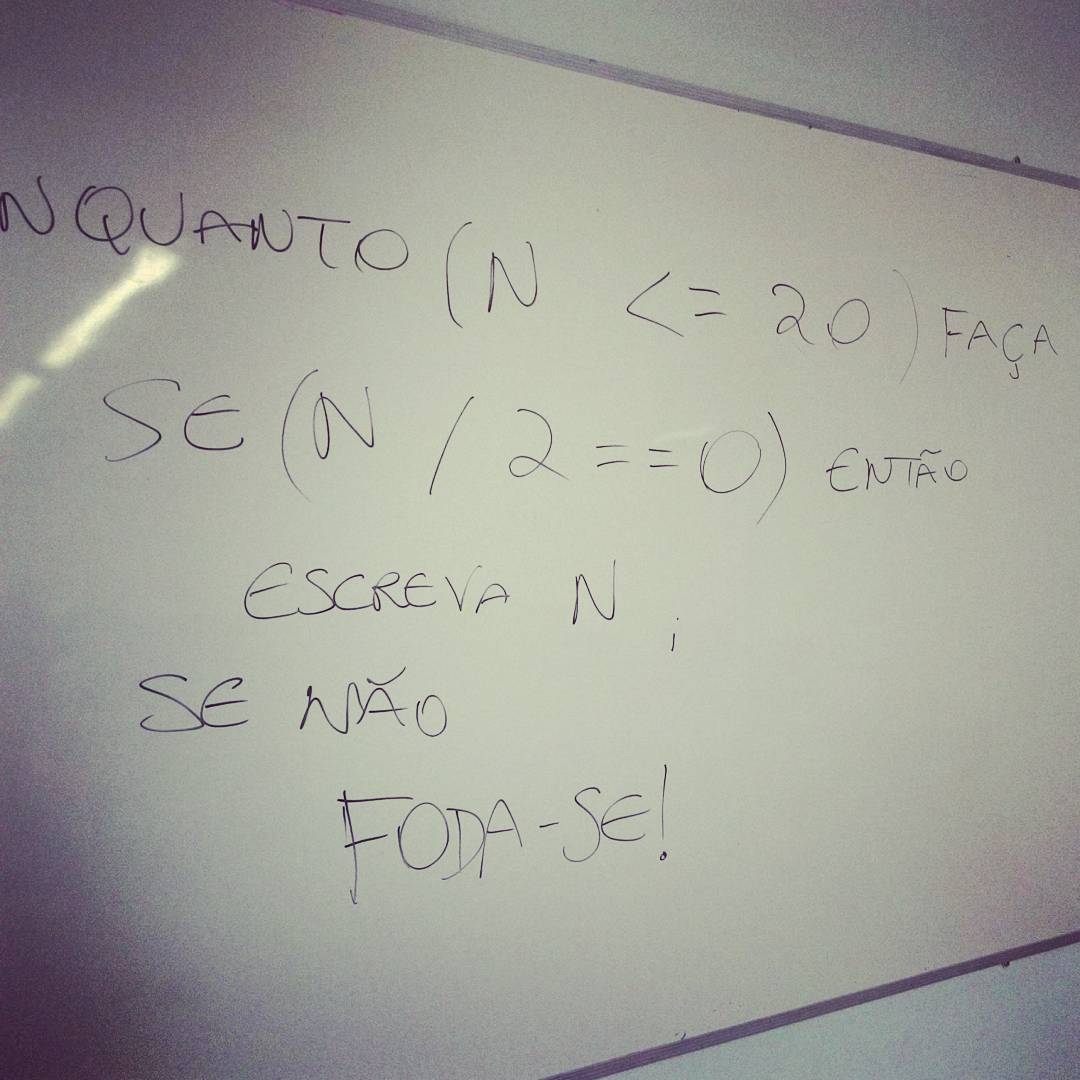 NQUANTO (N <= 20) FAÇA
SE (N / 2 == 0) ENTÃO
ESCREVA N ;
SE NÃO
FODA-SE!